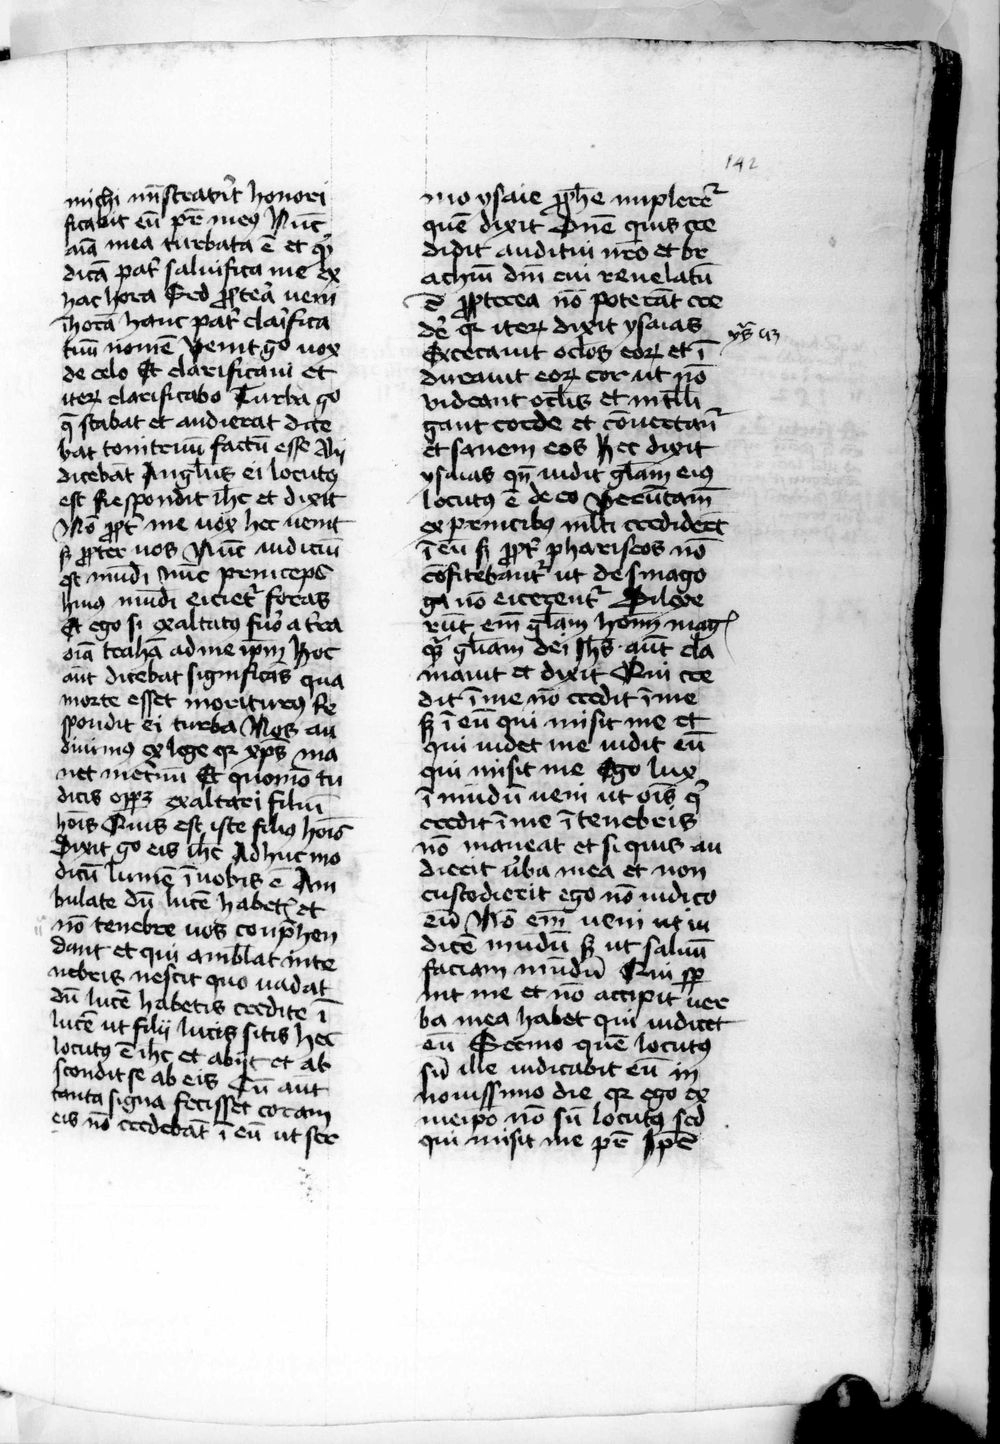 142
michi mīstrav̉it honori
ficabit eū pr̄e meꝰ Nūc
aīa mea turbata ē et qͥd
dicā pat̉ saluifica me ex
hac hora Sed ꝓpt̉ea veni
ī horā hanc pat̉ clarifica
tuū nomē Venit gͦ vox
de celo Et clarificavi et
iteꝝ clarificabo Turba gͦ
q̄ stabat et audierat dice
bat tonitruū factū esse Alij
dicebāt Angl̄us ei locutꝰ
est Respondit ih̄c et dixit
Nō ꝓpt̉ me vox hec venit
sꝫ ꝓpter vos Nūc iudiciū
est mūdi nūc princeps
huiꝰ mūdi eiciet̉ foras
Et ego si exaltatꝰ fuͦ a tr̉a
oīa trahā ad me ip̄m Hoc
aūt dicebat significās qua
morte esset moriturꝰ Re
spondit ei turba Nos au
diuimꝰ ex lege qꝛ xp̄s ma
net inet̉nū Et quomō tu
dicis oꝑꝫ exaltari filiū
hōis Quis est iste filiꝰ hōis
Dixit gͦ eis ih̄c Adhuc mo
dicū lumē ī vobis ē Am
bulate dū lucē habet̉ et
nō tenebre vos conp̄hen
dant et qui ambl̄at in te
nebris nescit quo vadat
dū lucē habetis credite ī
lucē ut filij lucis sitis hec
locutꝰ ē ih̄c et abijt et ab
scondit se ab eis Cū aūt
tanta signa fecisset coram
eis nō credebāt ī eū ut ser
mo ysaie ꝓph̄e impleret̉
quē dixit Dn̄e quis cre
didit auditui nr̄o et br
achiū dn̄i cui revelatū
ē ꝓpterea nō poterāt cre
der̉ qꝛ iteꝝ dixit ysaias
ys̉ vi
Excecavit oclōs eoꝝ et ī
duravit eoꝝ cor ut nō
videant ocl̄is et intelli
gant corde et cōuertant̉
et sanem eos Hec dixit
ysaias qn̄ vidit gl̄am eiꝰ
locutꝰ ē de eo Verūtam̄
ex principibꝰ ml̄ti crediderūt
ī eū sꝫ ꝓpt̉ phariseos nō
cōfitebant̉ ut de sinago
ga nō eicerent̉ Dilexe
rūt em̄ gl̄am homī mag̉
qͣ gl̄iam dei Ih̄s aūt cla
mavit et dixit Qui cre
dit ī me nō credit ī me
sꝫ ī eū qui misit me et
qui videt me vidit eū
qui misit me Ego lux
ī mūdū veni ut oīs qͥ
credit ī me ī tenebris
nō maneat et si quis au
dierit v̉ba mea et non
custodierit ego nō iudico
eū Nō em̄ veni ut iu
dicē mūdū sꝫ ut saluū
faciam mūdū Qui sꝑ
nit me et nō accipit ver
ba mea habet qui iudicet
eū Sermo quē locutꝰ
sū ille iudicabit eū in
novissimo die qꝛ ego ex
meip̄o nō sū locutꝰ sed
qui misit me pr̄e Ip̄e